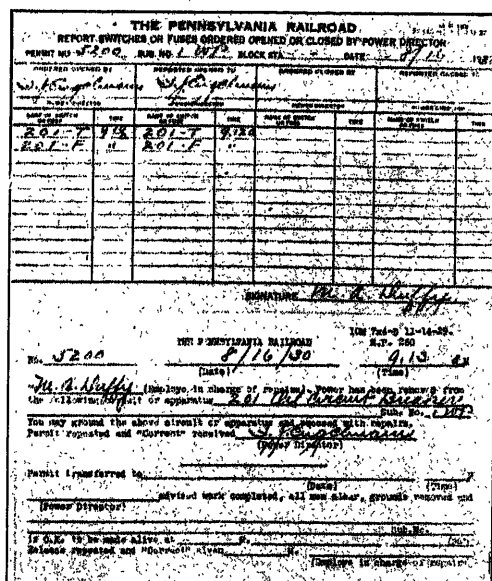 THE PENNSYLVANIA RAILROAD
REPORT SWITCHES OR FUSES ORDERED OPENED OR CLOSED BY POWER DIRECTOR
PERMIT NO. 5200 SUB. NO. 1 WP BLOCK STA. DATE 8/16 193
ORDERED OPENED BY REPORTED OPENED TO ORDERED CLOSED BY REPORTED CLOSED TO
TIME TIME TIME TIME
201-T 9.12 201-T 9.12
201-F " 201-F "
SIGNATURE M. A. Duffy
11-14-29.
THE PENNSYLVANIA RAILROAD M.P. 260
No. 5200 8/16/30 9.13 M
(Date) (Time)
M. A. Duffy (Employe in charge of repairs). Power has been removed from
the following circuit or apparatus 201 Oil Circuit Breaker
Sub. No. 1 WP
You may ground the above circuit or apparatus and proceed with repairs.
Permit repeated and "Current" received
(Power Director)
Permit transferred to M
(Date) (Time)
advised work completed, all men clear, grounds removed and
(Power Director)
Sub. No.
is O.K. to be made alive at M.
Release repeated and "Current" given M.
(Employe in charge of repairs)